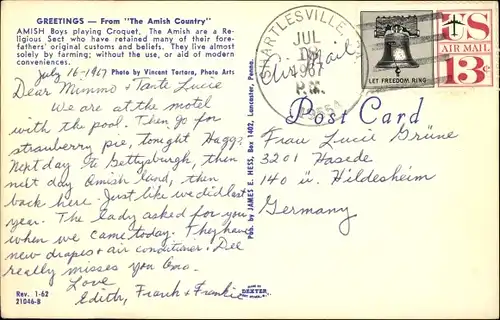 GREETINGS — From "The Amish Country"
AMISH Boys playing Croquet. The Amish are a Re-
ligious Sect who have retained many of their fore-
fathers' original customs and beliefs. They live almost
solely by farming; without the use, or aid of modern
conveniences.
July 16-1967 Photo by Vincent Tortora, Photo Arts
Dear Mimmo + Tante Lucie
We are at the motel
with the pool. Then go for
strawberry pie, tonight Haag?
Next day to Gettysburgh, then
next day Amish land, then
back here. Just like we did last
year. The lady asked for you
when we came today. They have
new drapes + air conditioner. Dee
really misses you
Love
Edith, Frank + Frankie
Rev. 1-62
21046-B
MADE BY
DEXTER
Pub. by JAMES E. HESS, Box 1402, Lancaster, Penna.
SHARTLESVILLE, PA.
JUL
1967
P.M.
19554
Air Mail
LET FREEDOM RING
US
AIR MAIL
13¢
Post Card
Frau Lucie Grüne
3201 Haside
140 ü. Hildesheim
Germany